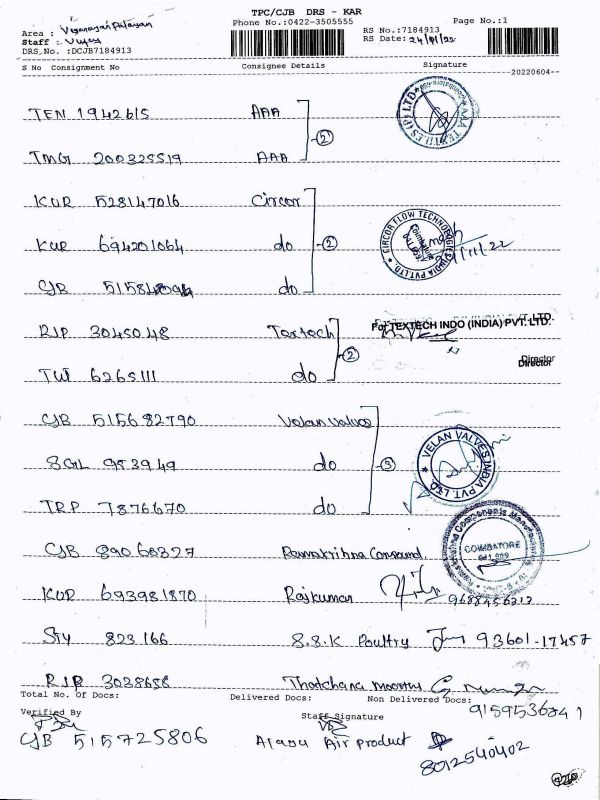 TPC/CJB DRS - KAR
Phone No.:0422-3505555 Page No.:1
Area :
Staff : Vijay
RS No.:7184913
DRS.No. :DCJB7184913
RS Date: 24/11/22
S No Consignment No Consignee Details Signature
20220604--
TEN 1942615 AAA
2
TMG 200325519 AAA
AAA TEXTILES (P) LTD
KUR 528147016 Circor
KUR 694201064 do 2
CIRCOR FLOW TECHNOLOGIES INDIA PVT. LTD.
Coimbatore
641
/11/22
CJB do
RJP 3045048 Textech
For TEXTECH INDO (INDIA) PVT. LTD.
2
Director
TUT 6265111 do
CJB 515682790 Velan Valves
SGL 953949 do 3
VELAN VALVES INDIA PVT. LTD.
TRP 7876670 do
CJB 89068327 Ramakrihna Consumd
COIMBATORE
KUR 693981870 Rajkumar
9688456213
STY 823166 S.S.K Poultry 93601-17457
RJP 3028658 Thatchana moorthy
Total No. Of Docs: Delivered Docs: Non Delivered Docs:
9159536841
Verified By Staff Signature
CJB 515725806 Alasu Air product
8012540402